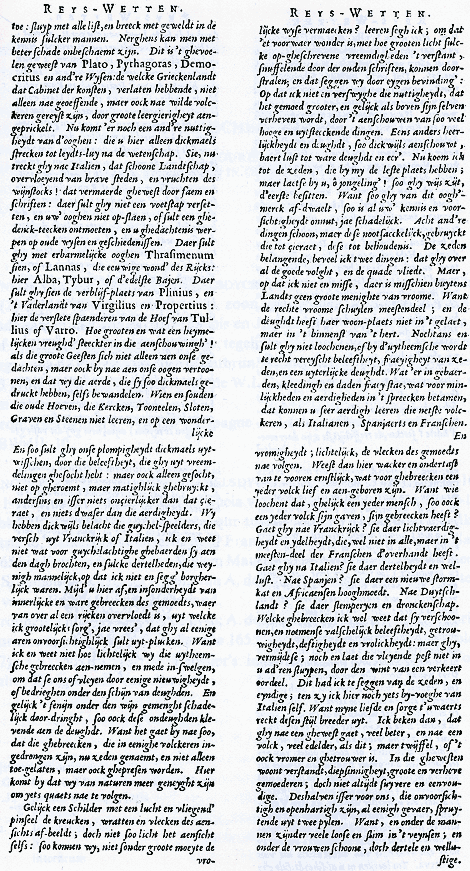 REYS-WETTEN.
toe: sluyp met alle list, en breeck met geweldt in de
kennis sulcker mannen. Nerghens kan men met
beter schade onbeschaemt zijn. Dit is 't ghevoe-
len geweest van Plato, Pythagoras, Demo-
critus en and're Wysen: de welcke Grieckenlandt
dat Cabinet der konsten, verlaten hebbende, niet
alleen nae geoeffende, maer oock nae wilde volc-
keren gereyst zijn, door groote leergierigheyt aen-
geprickelt. Nu komt 'er noch een and're nuttig-
heydt van d'ooghen: die u hier alleen dickmaels
strecken tot leydts-luy na de wetenschap. Sie, nu
treckt ghy nae Italien, dat schoone Landtschap,
overvloeyend van brave steden, en vruchten des
wijnstocks! dat vermaerde gheweest door faem en
schriften: daer sult ghy niet een voetstap verset-
ten, en uw' ooghen niet op-slaen, of sult een ghe-
denck-teecken ontmoeten, en u ghedachtenis wer-
pen op oude wysen en geschiedenissen. Daer sult
ghy met erbarmelijcke ooghen Thrasimenum
sien, of Lannas, die eeuwige wond' des Rijcks:
hier Alba, Tybur, of d'edelste Bajen. Daer
sult ghy sien de verblijf-plaets van Plinius, en
't Vaderlandt van Virgilius en Propertius:
hier de verslete spaenderen van de Hoef van Tul-
lius of Varro. Hoe grooten en wat een heyme-
lijcken vreughd' steeckter in die aenschouwingh'!
als die groote Geesten sich niet alleen aen onse ge-
dachten, maer oock by nae aen onse oogen vertoo-
nen, en dat wy die aerde, die sy soo dickmaels ge-
druckt hebben, selfs bewandelen. Wien en souden
die oude Hoeven, die Kercken, Tooneelen, Sloten,
Graven en Steenen niet leeren, en op een wonder-
lijcke
REYS-WETTEN.
lijcke wyse vermaecken? leeren segh ick; om dat
'et voorwaer wonder is, met hoe grooten licht sulc-
ke op-gheschrevene vreemdigheden 't verstant,
snuffelende door der ouden schriften, konnen door-
stralen; en dat seggen wy door eygen bevinding':
Op dat ick niet en verswyghe die nuttigheydt, dat
het gemoed grooter, en gelijck als boven sijn selven
verheven wordt, door 't aenschouwen van soo veel
hooge en uytsteeckende dingen. Eens anders heer-
lijckheydt en deughdt, soo dickwijls aenschouwt,
baert lust tot ware deughde en eer'. Nu koom ick
tot de zeden, die by my de leste plaets hebben;
maer laetse by u, ô jongeling'! soo ghy wijs zijt,
d'eerste besitten. Want soo ghy van dit oogh-
merck af-dwaelt, soo is al uw' kennis en voor-
sichtigheydt onnut, jae schadelijck. Acht and're
dingen schoon, maer dese nootsaeckelijck, gebruyckt
die tot çieraet, dese tot behoudenis. De zeden
belangende, beveel ick twee dingen: dat ghy over
al de goede volght, en de quade vliedt. Maer,
op dat ick niet en misse, daer is misschien buytens
Landts geen groote menighte van vroome. Want
de rechte vroome schuylen meestendeel; en de
deughdt heeft haer woon-plaets niet in 't gelaet,
maer in 't binnenste van 't hert. Nochtans en-
sult ghy niet loochenen, of by d'uytheemsche wordt
te recht vereyscht beleeftheyt, fraeyigheyt van ze-
den, en een uyterlijcke deughdt. Wat 'er in gebaer-
den, kleedingh en daden fraey staet, wat voor min-
lijckheden en aerdigheden in 't spreecken betamen,
dat konnen u seer aerdigh leeren die netste volc-
keren, als Italianen, Spanjaerts en Franschen.
En
En soo sult ghy onse plompigheydt dickmaels uyt-
wisschen, door die beleeftheyt, die ghy uyt vreem-
delingen gesocht hebt: maer oock alleen gesocht,
niet op gheroemt, maer matighlijck gebruyckt,
andersins en isser niets onçierlijcker dan dat çie-
raet, en niets dwaser dan die aerdigheydt. Wy
hebben dickwijls belacht die guychel-speelders, die
versch uyt Vranckrijck of Italien, ick en weet
niet wat voor guychelachtighe ghebaerden sy aen
den dagh brochten, en sulcke dertelheden, die wey-
nigh mannelijck, op dat ick niet en segg' borgher-
lijck waren. Mijd' u hier af, en insonderheydt van
innerlijcke en ware gebreecken des gemoedts, waer
van over al een rijcken overvloedt is, uyt welcke
ick grootelijcks sorg', jae vrees', dat ghy al eenige
aren onvoorsichtighlijck sult uyt-plucken. Want
ick en weet niet hoe lichtelijck wy die uytheem-
sche gebreecken aen-nemen, en mede in-swelgen,
om dat se ons of vleyen door eenige nieuwigheydt,
of bedrieghen onder den schijn van deughden. En
gelijck 't fenijn onder den wijn gemenght schade-
lijck door-dringht, soo oock dese ondeughden kle-
vende aen de deughde. Want het gaet by nae soo,
dat die ghebreecken, die in eenighe volckeren in-
gedrongen zijn, nu zeden genaemt, en niet alleen
toe-gelaten, maer oock ghepresen worden. Hier
komt by dat wy van naturen meer geneyght zijn
om yets quaets nae te volgen.
Gelijck een Schilder met een lucht en vliegend'
pinseel de kreucken, wratten en vlecken des aen-
sichts af-beeldt; doch niet soo licht het aensicht
selfs: soo konnen wy, niet sonder groote moeyte de
vro-
vromigheydt; lichtelijck, de vlecken des gemoedts
nae volgen. Weest dan hier wacker en ondertast
van te vooren ernstlijck, wat voor ghebreecken een
yeder volck lief en aen-geboren zijn. Want wie
loochent dat, ghelijck een yeder mensch, soo oock
een yeder volck sijn gaven, sijn gebreecken heeft?
Gaet ghy na Vranckrijck? sie daer lichtvaerdig-
heyt en ydelheydt; die, wel niet in alle, maer in 't
meesten-deel der Franschen d'overhandt heeft.
Gaet ghy na Italien? sie daer dertelheydt en wel-
lust. Nae Spanjen? sie daer een nieuwe storm-
kat en Africaensen hooghmoedt. Nae Duytsch-
landt? sie daer slemperyen en dronckenschap.
Welcke ghebreecken ick wel weet dat sy verschoo-
nen, en noemense valschelijck beleeftheydt, getrou-
wigheydt, deftigheydt en vrolickheydt: maer ghy,
vermijdse; noch en laet die vleyende pest niet in
u ad'ren sluypen, door den wint van een verkeert
oordeel. Dit had ick te seggen van de zeden, en
eyndige; ten zy ick hier noch yets by-voeghe van
Italien self. Want myne liefde en sorge t'uwaerts
reckt desen stijl breeder uyt. Ick beken dan, dat
ghy nae een ghewest gaet, veel beter, en nae een
volck, veel edelder, als dit; maer twyffel, of 't
oock vromer en ghetrouwer is. In die ghewesten
woont verstandt, diepsinnigheyt, groote en verheve
gemoederen; doch niet altijdt suyvere en eenvou-
dige. Deshalven isser voor ons, die onvoorsich-
tigh en openhartigh zijn, al eenigh gevaer, spruy-
tende uyt twee pylen. Want, en onder de man-
nen zijnder veele loose en slim in 't veynsen; en
onder de vrouwen schoone, doch dertele en wellu-
stige.